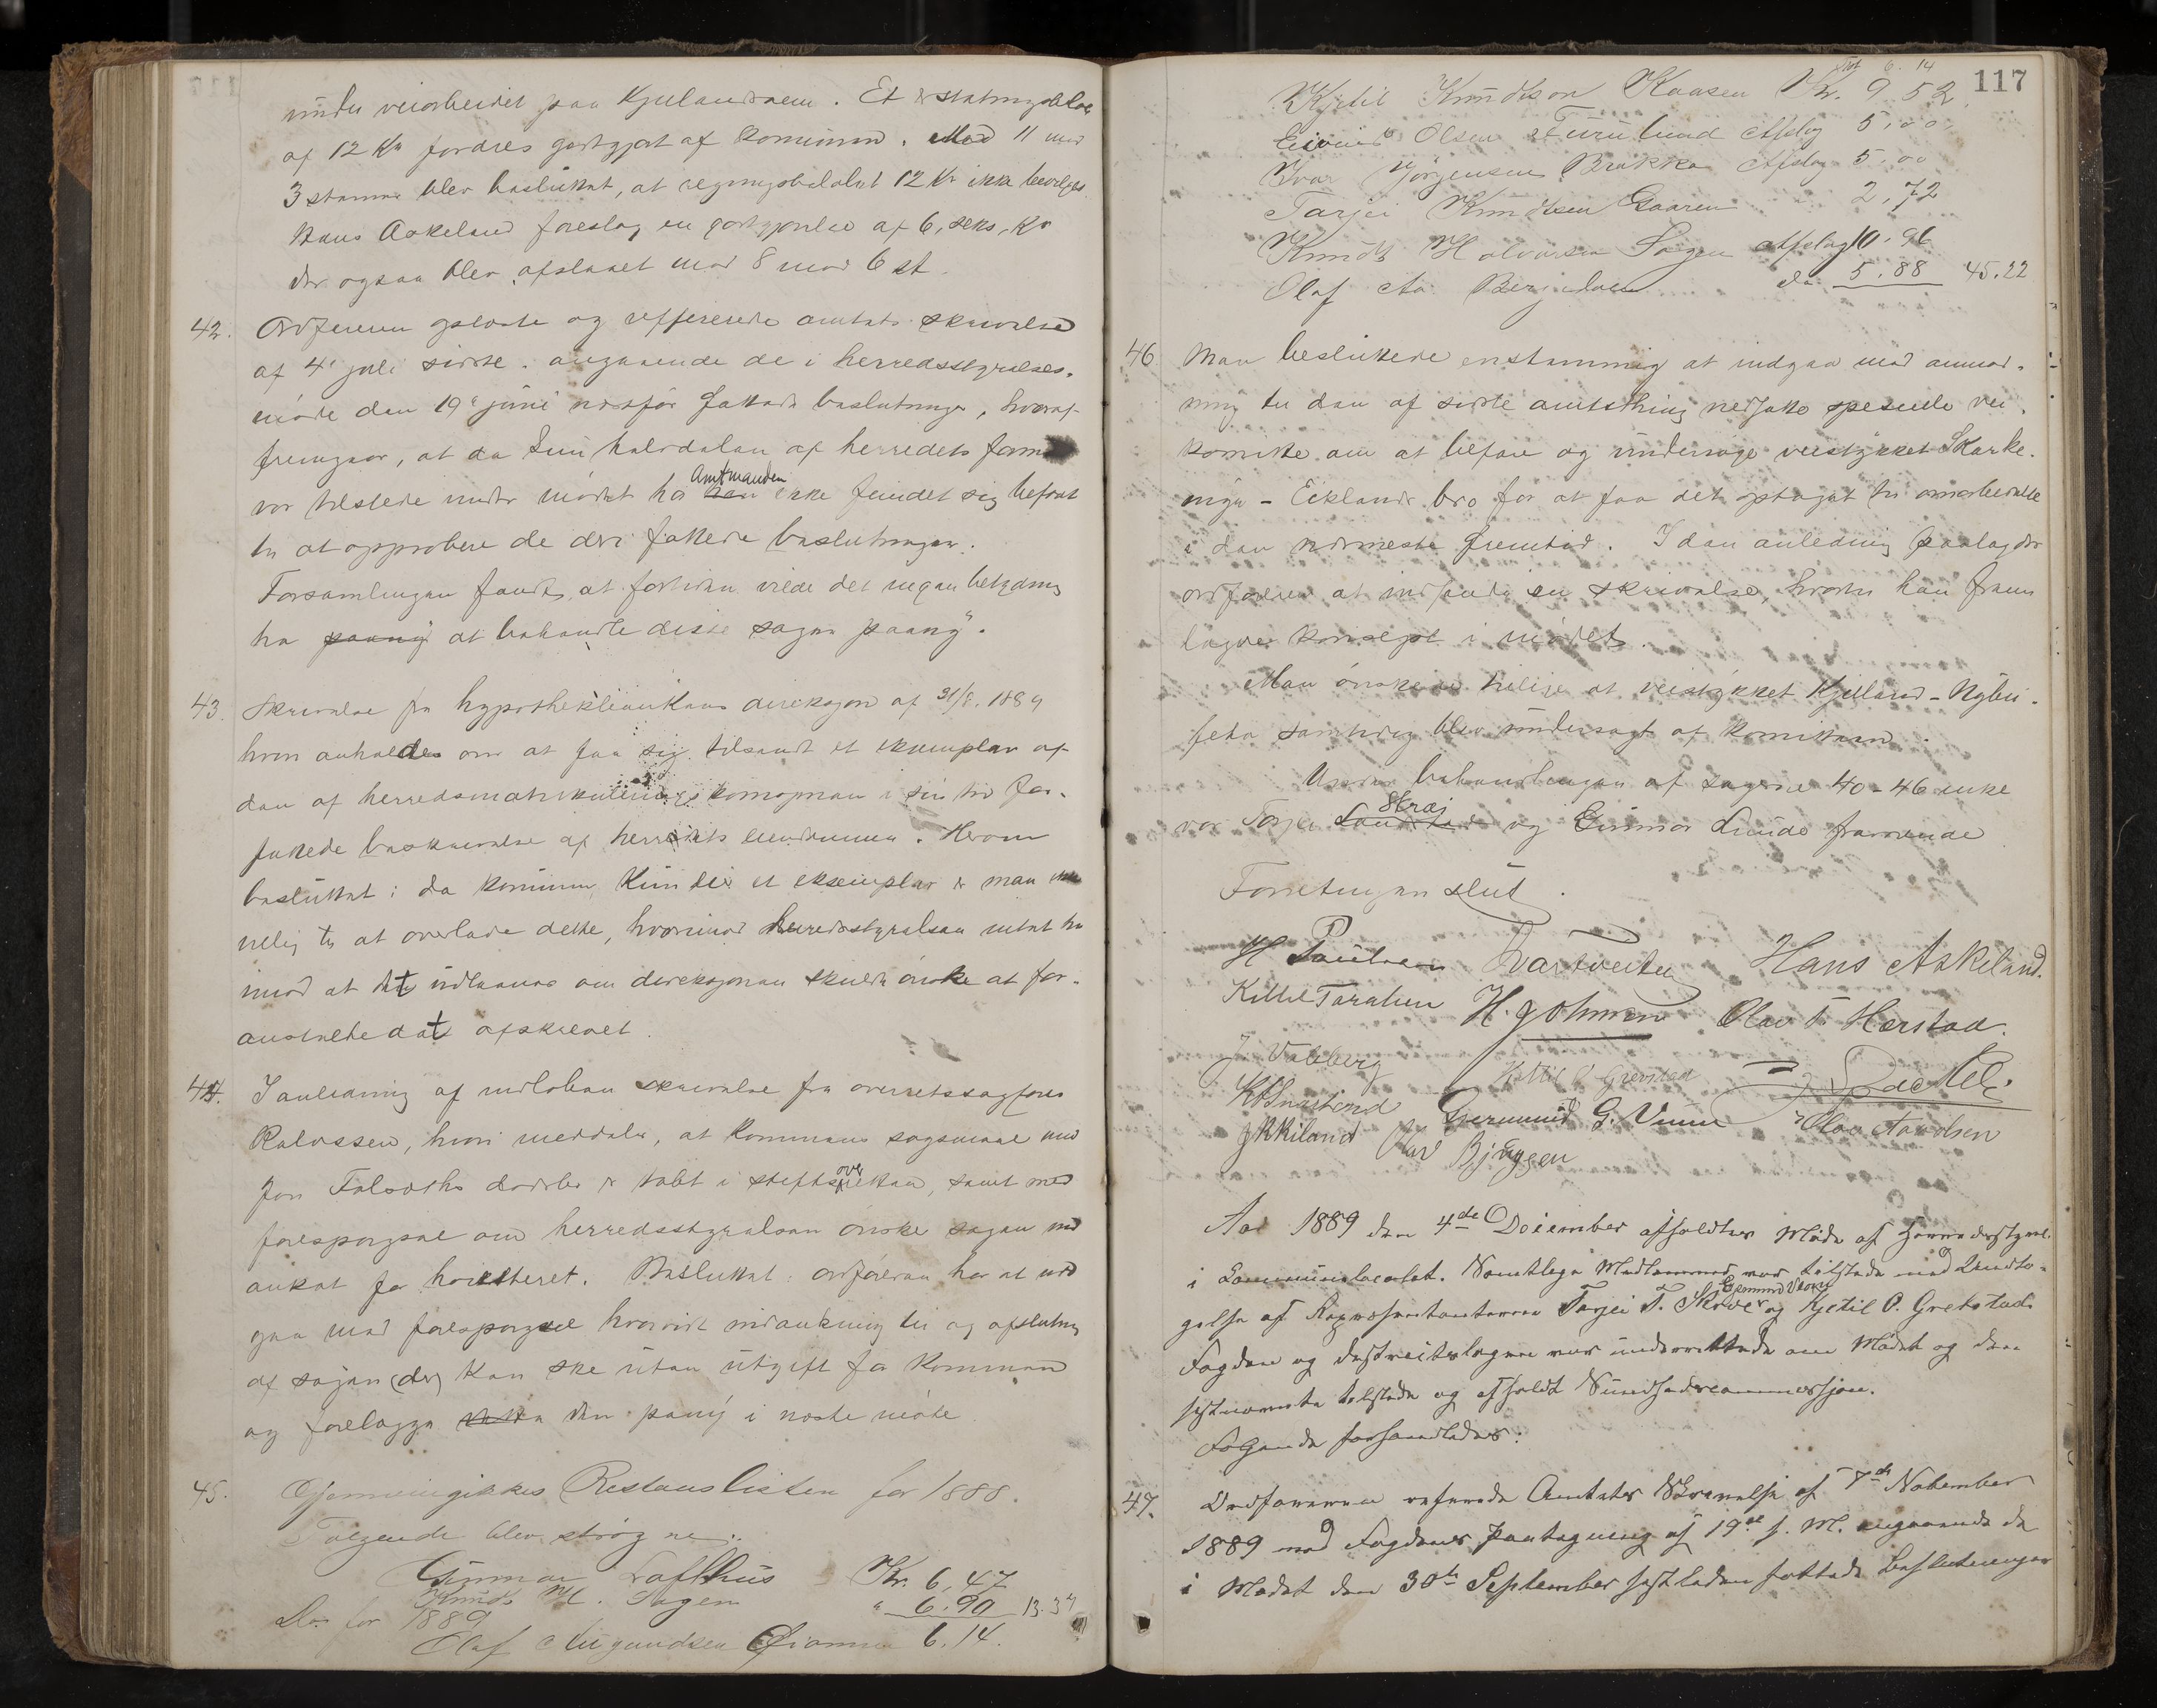 under veiarbeidet paa Kjeilandsveien. Et erstatningsbeløb
af 12 Kr fordres godtgjort af kommunen. Med 11 mod
3 stemmer blev besluttet, at regningsbeløbet 12 Kr ikke bevilges
Hans Askeland foreslog en godtgjørelse af 6, seks, Kr
der ogsaa blev afslaaet mod 8 mod 6 st.
42. Ordføreren oplæste og refererede amtets skrivelse
af 4' juli sidste. angaaende de i herredsstyrelses-
møde den 19' juni næstfør fattede beslutninger, hvoraf
fremgaar, at da kun halvdelen af herredets form
var tilstede under mødet har han Amtmanden ikke fundet sig beføiet
til at approbere de deri fattede beslutninger.
Forsamlingen fandt, at fortiden vilde det ingen betydning
ha paany at behandle disse sager paany.
43. Skrivelse fra hypothekbankens direksjon af 31/8. 1889
hvori anholdes om at faa sig tilsendt et eksemplar af
den af herredsmatrikuleringskommisjonen i sin tid for-
fattede beskrivelse af herredets eiendomme. Herom
besluttet: da kommunen kun eier et eksemplar er man ikke
villig til at overlade dette, hvorimod herredsstyrelsen intet har
imod at det udlaanes om direksjonen skulde ønske at for-
anstalte det afskrevet.
44. I anledning af indløben skrivelse fra overretssagfører
Kalvssen, hvori meddeles, at kommunens søgsmaal mod
Jon Falsoths dødsbo er tabt i stiftsoverretten, samt med
forespørgsel om herredsstyrelsen ønske sagen ind
anket for høiesteret. Besluttet: ordføreren har at ind
gaa med forespørgsel hvorvidt indankning til og afslutning
af sagen (der) kan ske uden utgift for kommunen
og forelægge den paany i næste møde
45. Gjennemgikkes Restanslisten for 1888.
Følgende blev strøgne:
Gunmar Lofthus Kr. 6,47
Knud H. Sagen " 6.90 13.37
Do for 1889
Olaf Augundsen 6.14.
117
6. 14
Kjetil Knudtson Kaasen Kr. 9 52
Eivind Olsen Furulund Afslag 5,00
Ivar Jörgensen Brakka Afslag 5.00
Tarjei Knudtsen Gaaren 2,72
Knudt Halvorsen Sagen Afslag 10.96
Olaf Aa. do 5.88 45.22
46 Man besluttede enstemmig at indgaa med anmod-
ning til den af sidste amtsthing nedsatte spesielle vei-
komite om at befare og undersøge veistykket Skarke-
- Eiklands bro for at faa det optaget til omarbeidelse
i den nærmeste fremtid. I den anledning paalagdes
ordføreren at indsende en skrivelse, hvortil han frem
lagde konsept i mødet.
Man ønskede tillige at veistykket Kjeiland - Nybu-
samtidig blev undersøgt af komiteen.
Under behandlingen af sagerne 40-46 ikke
var Tarjei Skræi og Gunmar Lunde fraværende
Forretningen slut.
H Paulsen Hans Askiland.
Kittil Taraldsen H. Johnsen Olav T. Herstad.
J Valeberg Kittil O Grevstad
Gunmund G. Vinne Olav Aavolsen
Olav Bjruggen
Aar 1889 den 4de December afholdtes Møde af Herredsstyrel.
i Communelocalet. Samtlige Medlemmer var tilstede med Undta-
gelse af Repræsentanterne Tarjei T. Skræi og Kjetil O. Grebstad.
Fogden og distriktslægen var underrettede om Mødet og den
sistnævnte tilstede og afholdt Sundhedscommissjon.
Følgende forhandledes:
47. Ordføreren refererede Amtets Skrivelse af 7de November
1889 med Fogdens Paategning af 19de s. M. angaaende de
i Mødet den 30te September sistleden fattede Beslutninger